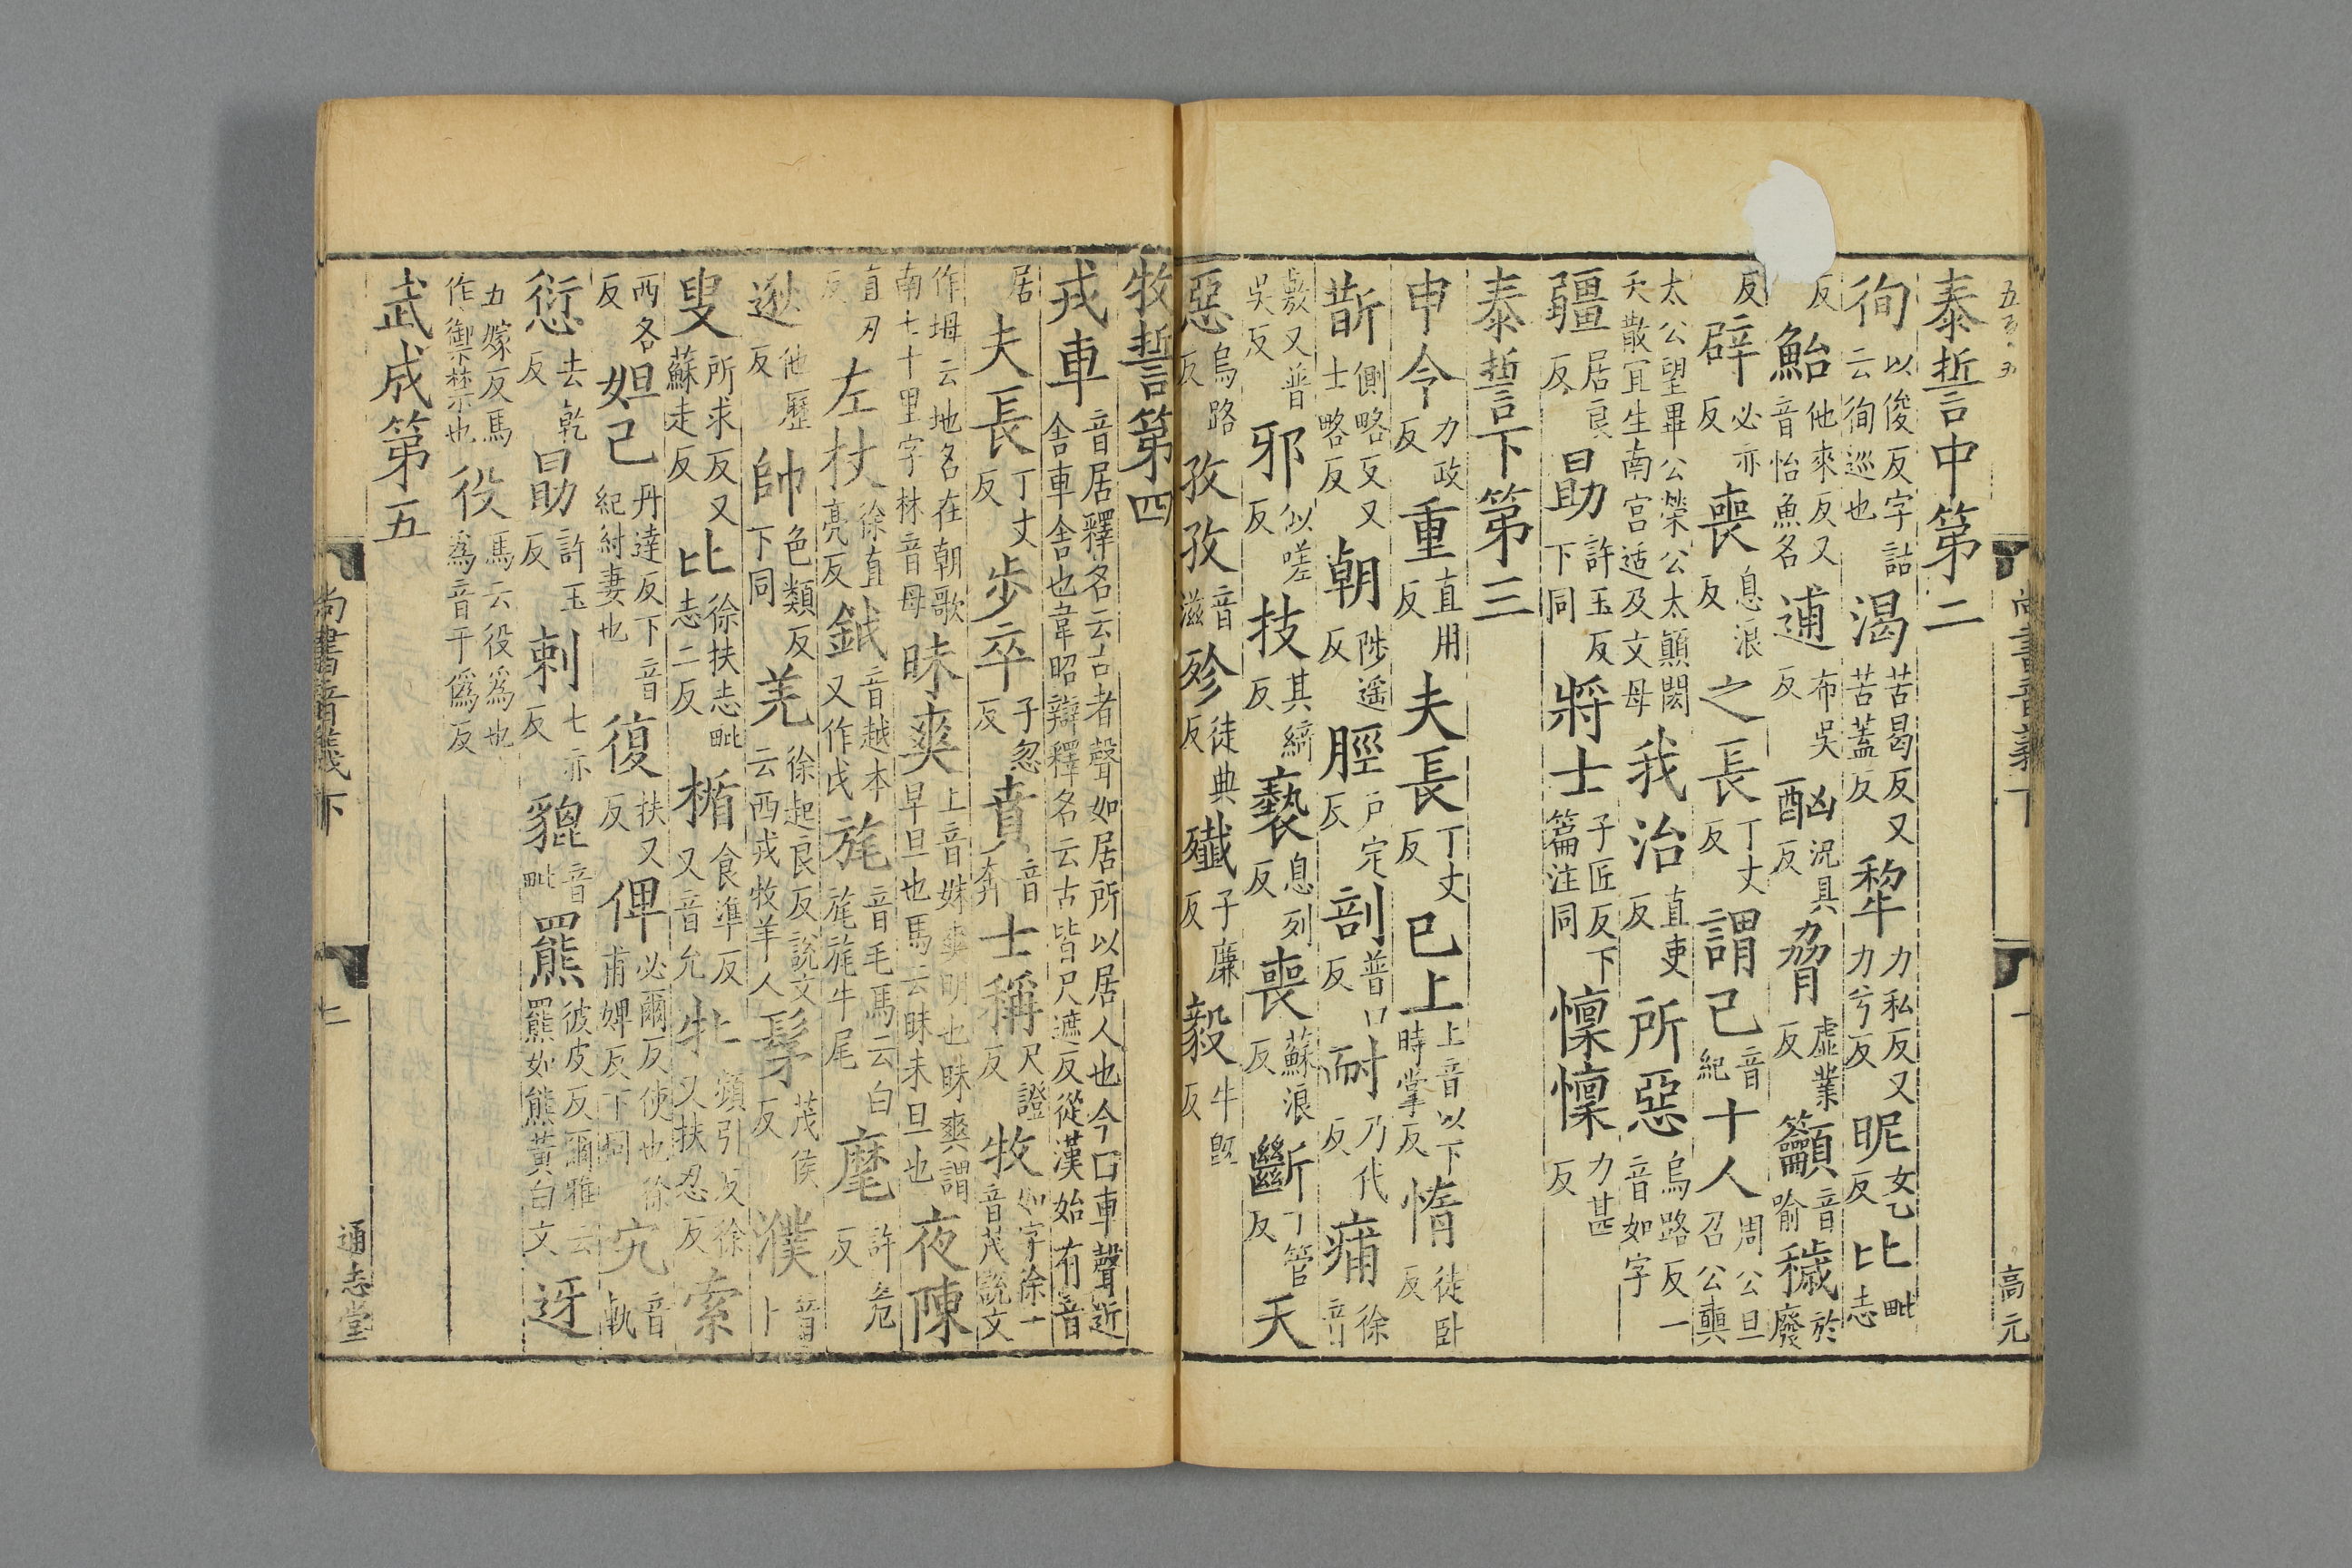 尚書音義下
高元
泰誓中第二
徇以俊反字詁云徇巡也渴苦曷反又苦蓋反犂力私反又力兮反昵女乙反比毗志
反鮐他來反又音怡魚名逋布吳反酗況具反脅虛業反籲音喻穢於廢
反辟必亦反喪息浪反之長丁丈反謂己音紀十人周公旦召公奭
太公望畢公榮公太顛閎夭散宜生南宮适及文母我治直吏反所惡烏路反一音如字
疆居良反勗許玉反下同將士子匠反下篇注同懍懍力甚反
泰誓下第三
申令力政反重直用反夫長丁丈反已上上音以下時掌反惰徒臥反
斮側略反又士略反朝陟遥反脛戶定反剖普口反耐乃代反痡徐音
敷又普吳反邪似嗟反技其綺反褻息列反喪蘇浪反斷丁管反天
惡烏路反孜孜音滋殄徒典反殲子廉反毅牛旣反
牧誓第四
戎車音居釋名云古者聲如居所以居人也今曰車聲近舍車舍也韋昭辯釋名云古皆尺遮反從漢始有音
居夫長丁丈反步卒子忽反賁音奔士稱尺證反牧如字徐一音茂說文
作坶云地名在朝歌南七十里字林音母昧爽上音妹爽明也昧爽謂早旦也馬云昧未旦也夜陳
直刃反左杖徐直亮反鉞音越本又作戉旄音毛馬云白旄旄牛尾麾許危反
逖他歷反帥色類反下同羌徐起良反說文云西戎牧羊人髳茂侯反濮音卜
叟所求反又蘇走反比徐扶志毗志二反楯食準反又音允牝頻引反徐又扶忍反索
西各反妲己丹達反下音紀紂妻也復扶又反俾必爾反使也徐甫婢反下同宄音軌
愆去乾反勗許玉反刺七亦反貔音毗羆彼皮反爾雅云羆如熊黃白文迓
五嫁反馬作禦禁也役馬云役爲也爲音于僞反
武成第五
尚書音義下
通志堂